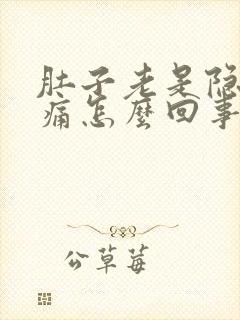 肚子老是隐
痛怎麼回事
公草莓